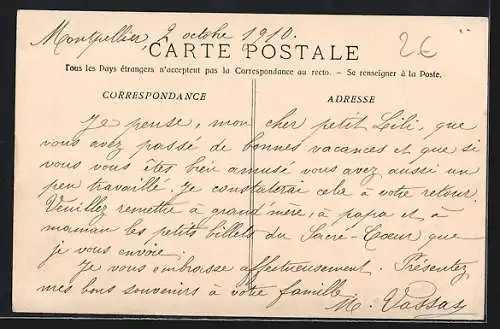 Montpellier, 2 octobre 1910.
2€
CARTE POSTALE
Tous les Pays étrangers n'acceptent pas la Correspondance au recto. – Se renseigner à la Poste.
CORRESPONDANCE
ADRESSE
Je pense, mon cher petit Lili, que
vous avez passé de bonnes vacances et que si
vous vous êtes bien amusé vous avez aussi un
peu travaillé. Je constaterai cela à votre retour.
Veuillez remettre à grand'mère, à papa et à
maman les petits billets du Sacré-Cœur que
je vous envoie.
Je vous embrasse affectueusement. Présentez
mes bons souvenirs à votre famille
M.